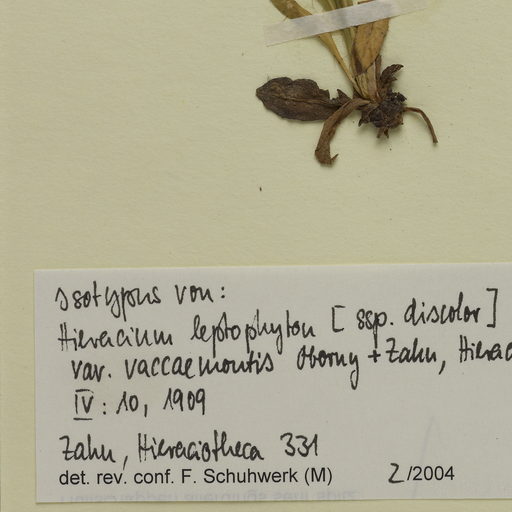 Isotypus von:
Hieracium leptophyton [ssp. discolor]
var. vaccaemontis Oborny + Zahn, Hierac
IV: 10, 1909
Zahn, Hieraciotheca 331
det. rev. conf. F. Schuhwerk (M) 2/2004